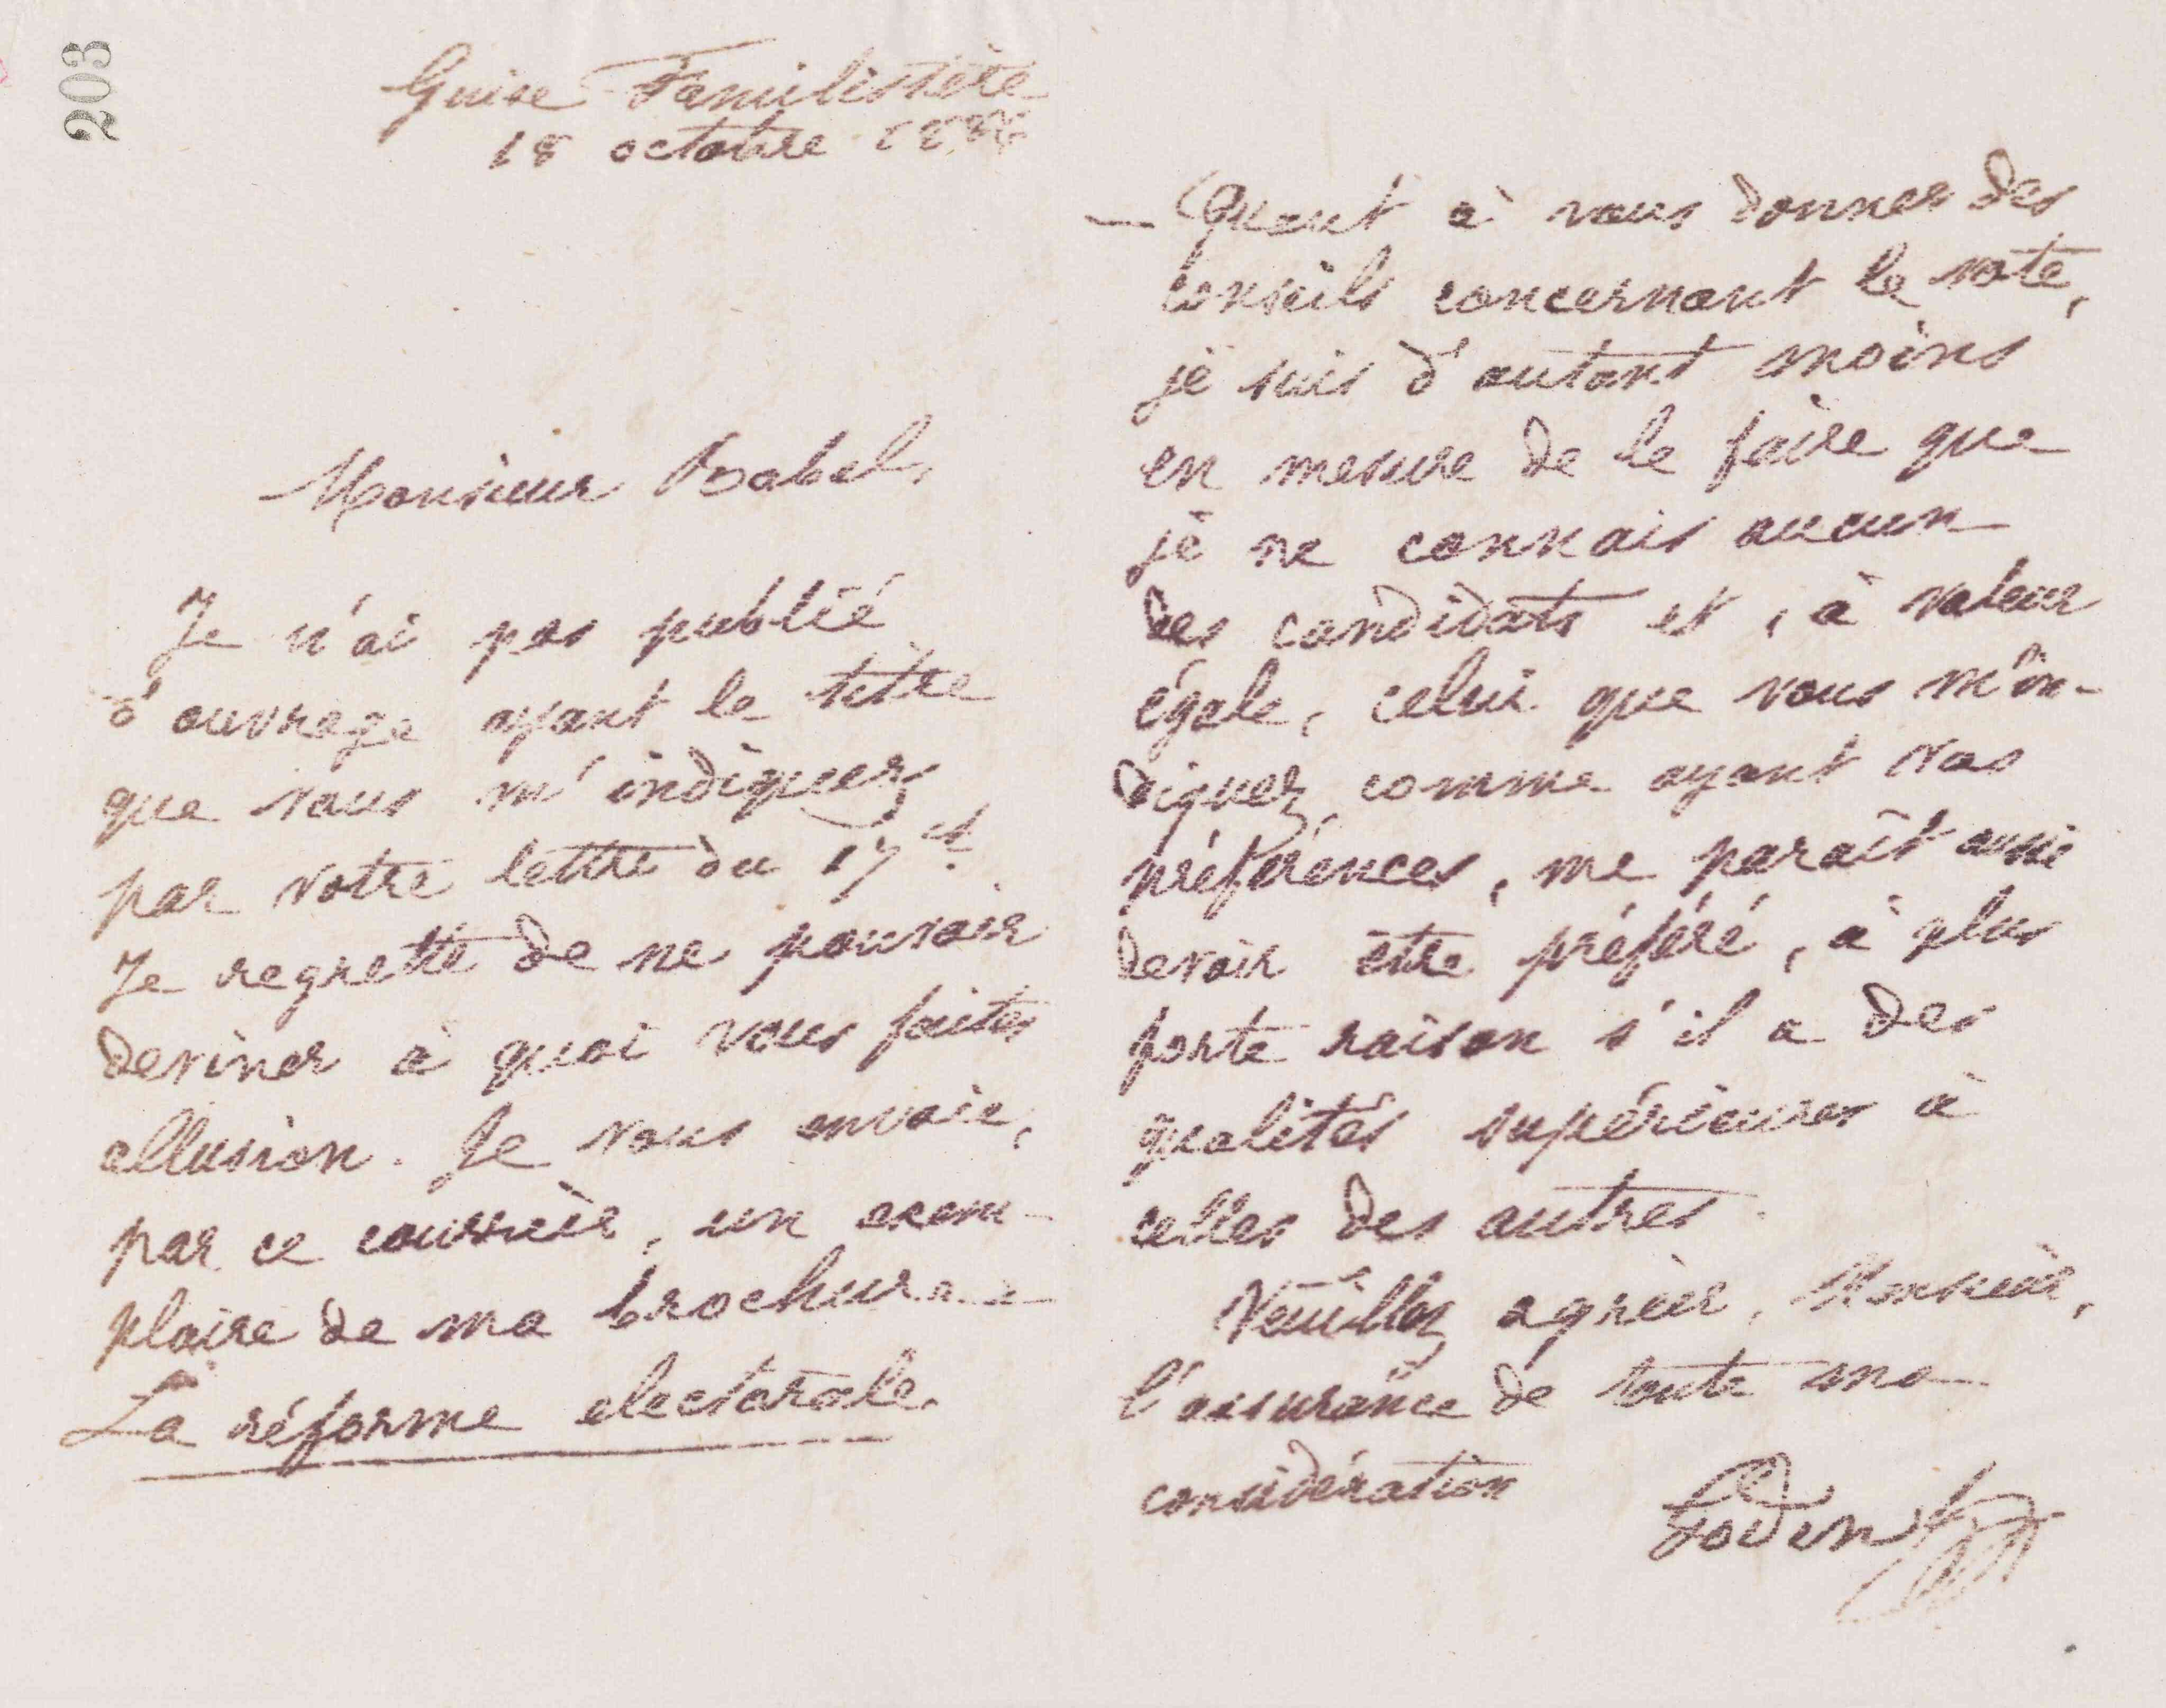 203
Guise Familistère
18 octobre
Monsieur Babel,
Je n'ai pas publié
d'ouvrage ayant le titre
que vous m'indiquez
par votre lettre du 17 ct.
Je regrette de ne pouvoir
deviner à quoi vous faites
allusion. Je vous envoie,
par ce courrier, un exem-
plaire de ma brochure
La réforme electorale.
— Quant à vous donner des
conseils concernant le vote,
je suis d'autant moins
en mesure de le faire que
je ne connais aucun
des candidats et, à valeur
égale, celui que vous m'in-
diquez comme ayant vos
préférences, me paraît aussi
devoir être préféré, à plus
forte raison s'il a des
qualités supérieures à
celles des autres.
Veuillez agréer, Monsieur,
l'assurance de toute ma
considération
Godin